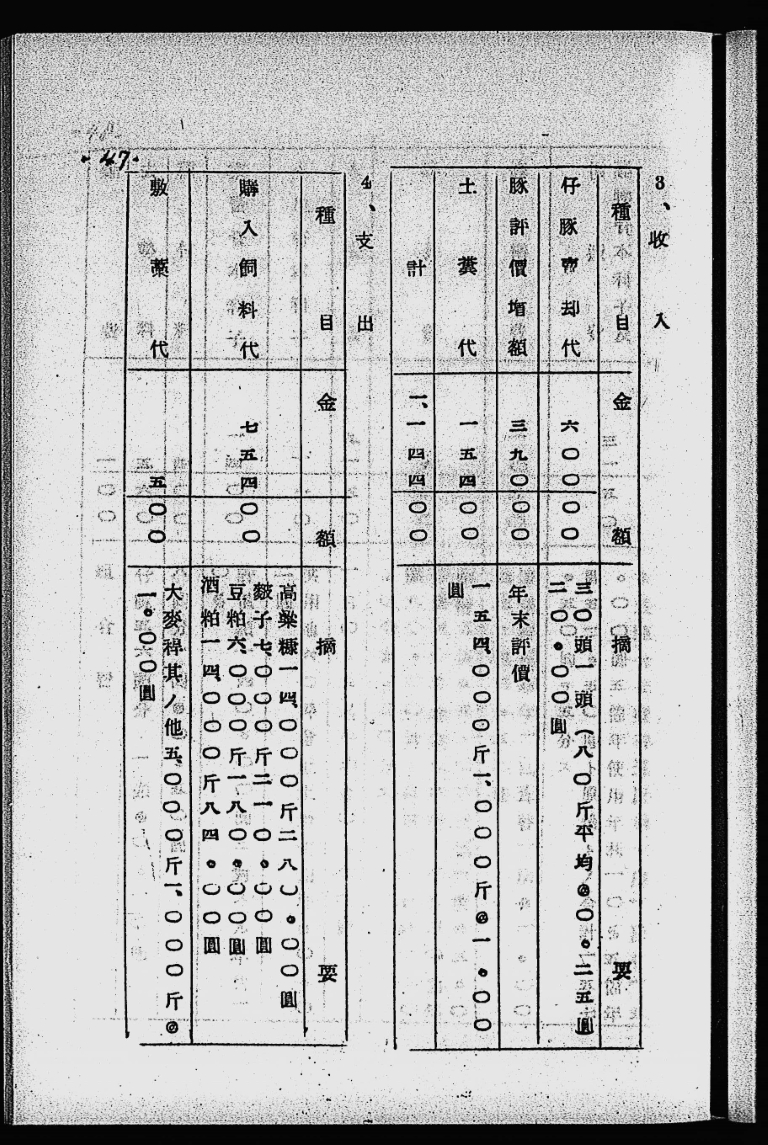 3、收入
種目 金額 摘要
仔豚賣却代 六〇〇〇〇 三〇頭一頭(八〇斤平均@〇。二五圓)
二〇。〇〇圓
豚評價增額 三九〇〇〇 年末評價
土糞代 一五四〇〇 一五四、〇〇〇斤一、〇〇〇斤@一。〇〇
圓
計 一、一四四〇〇
4、支出
種目 金額 摘要
購入飼料代 七五四〇〇 高粱糠一四、〇〇〇斤二八〇。〇〇圓
皷子七、〇〇〇斤二一〇。〇〇圓
豆粕六、〇〇〇斤一八〇。〇〇圓
酒粕一四、〇〇〇斤八四。〇〇圓
敷藁代 五〇〇 大麥稈其ノ他五、〇〇〇斤一、〇〇〇斤@
一。〇〇圓
・47・